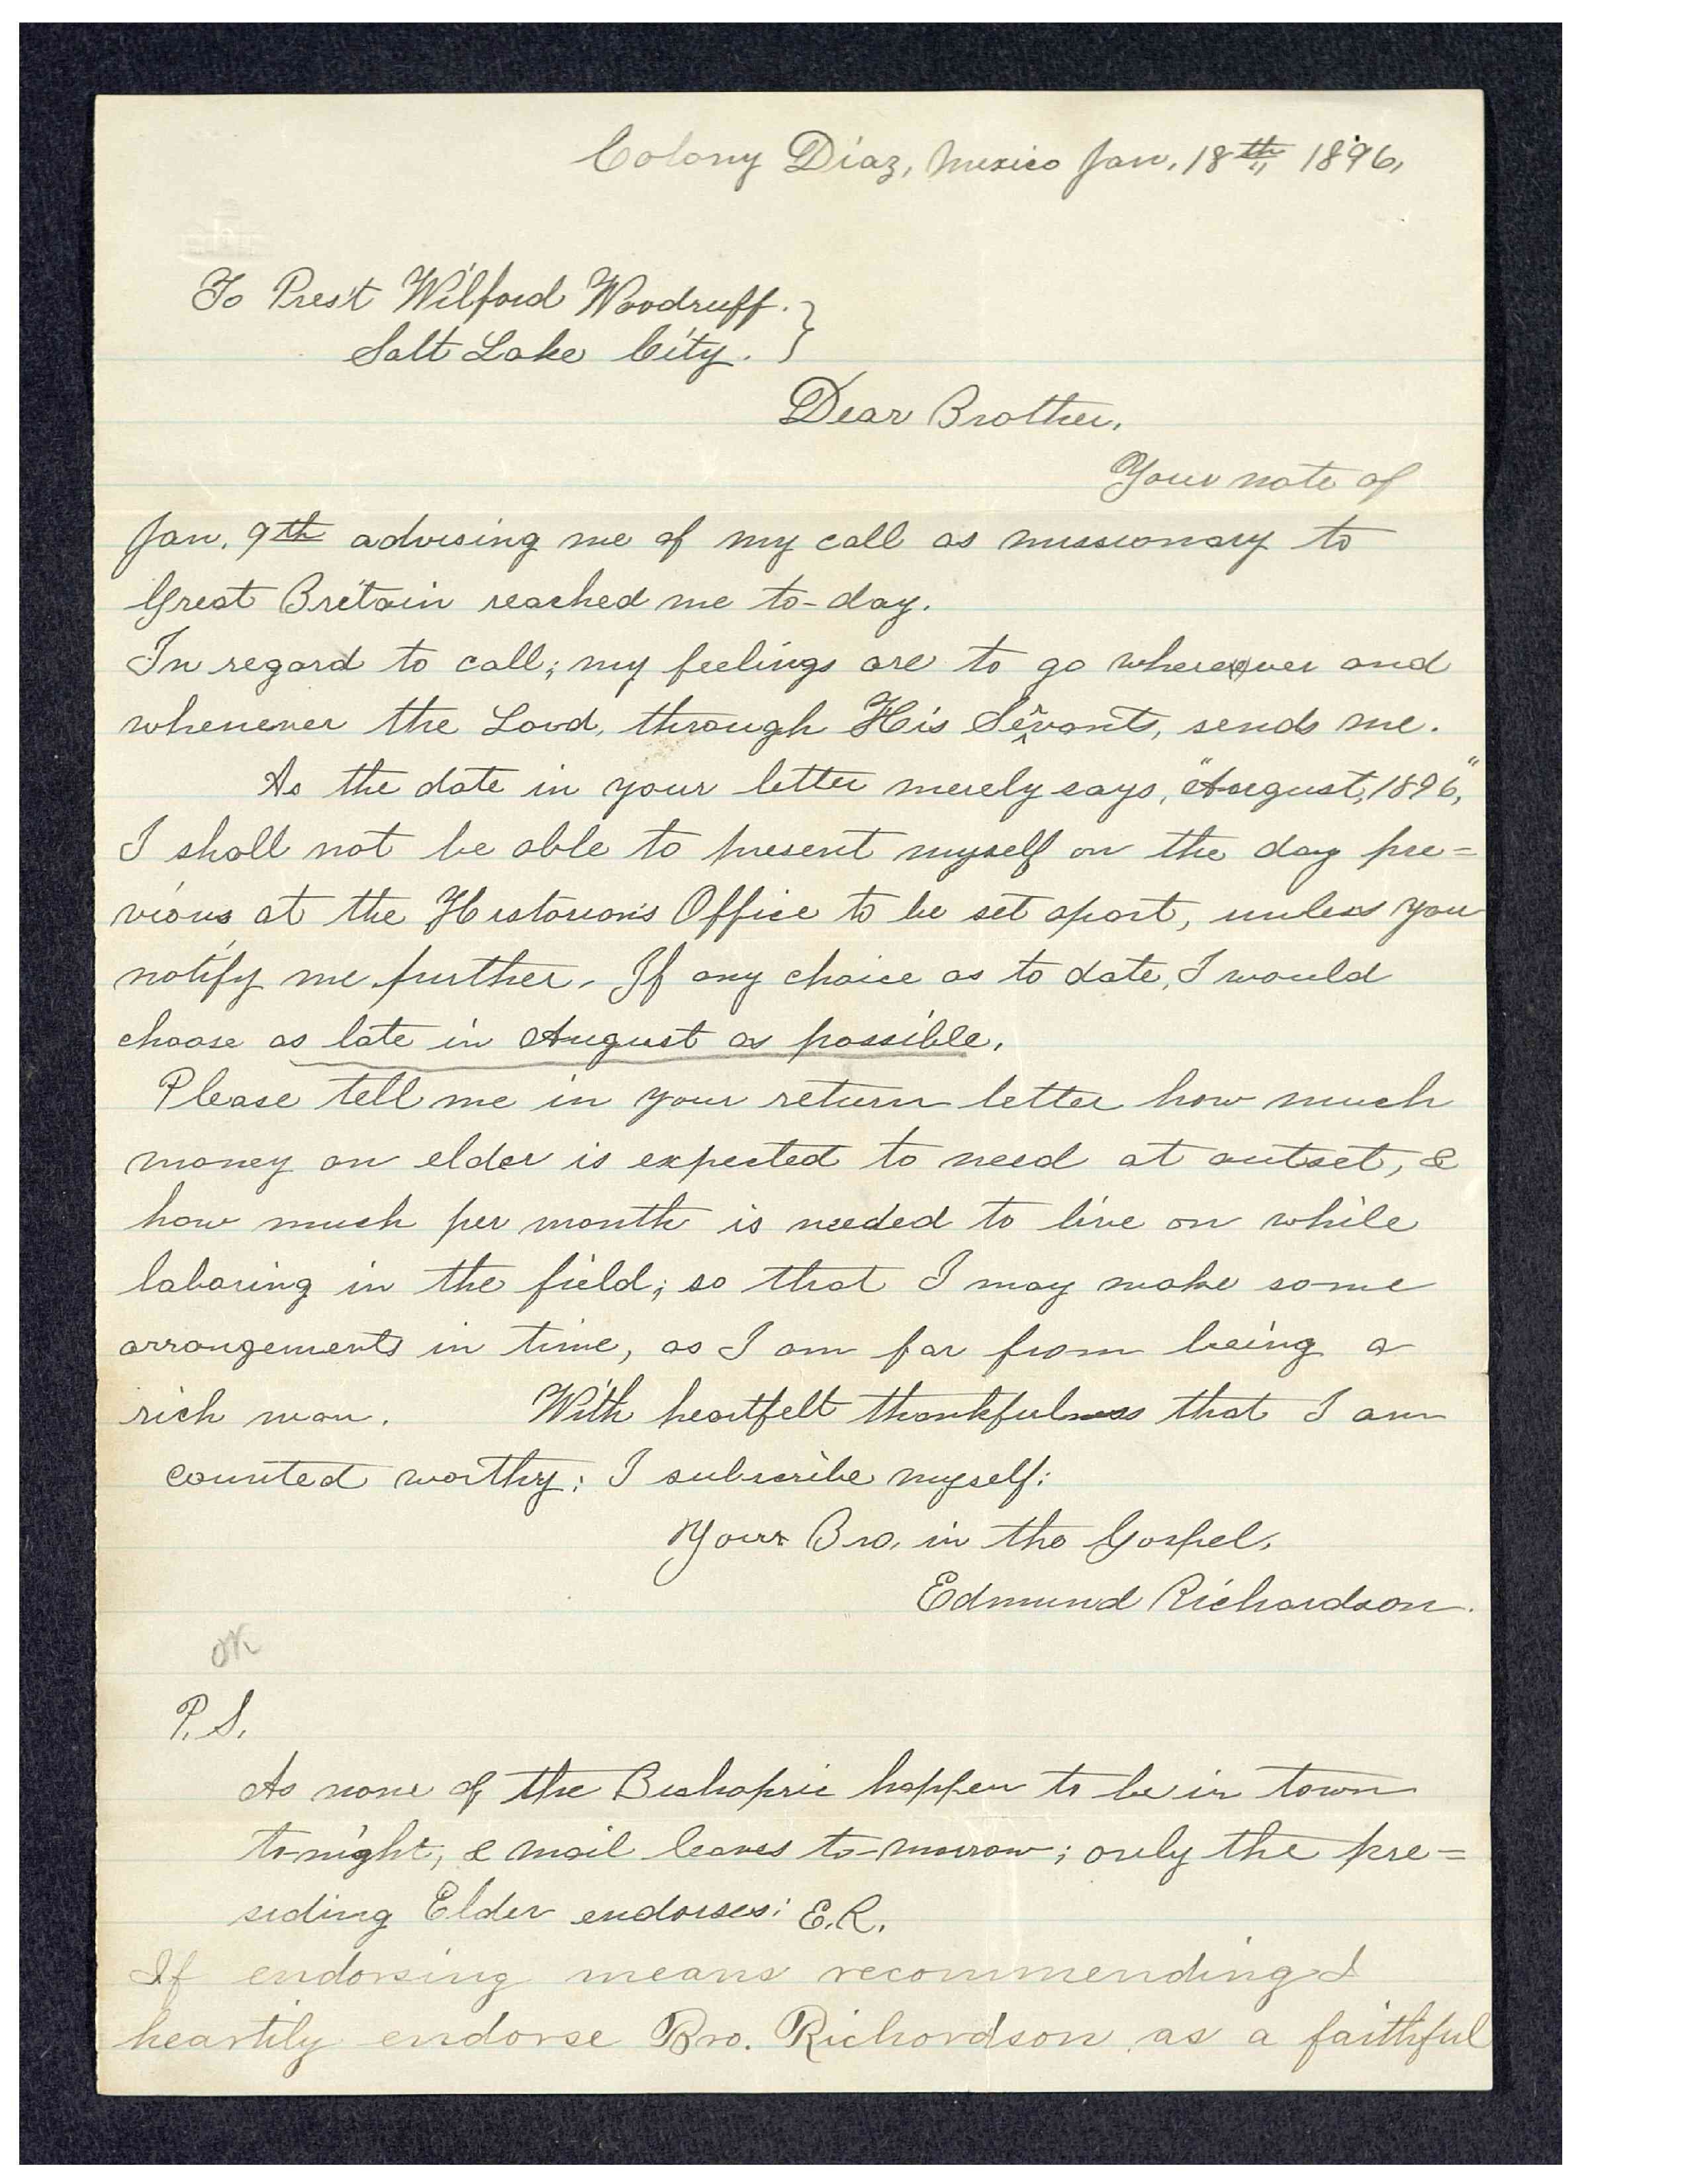 Colony Diaz, Mexico Jan. 18th, 1896,
To Pres't Wilford Woodruff. }
Salt Lake City. }
Dear Brother,
Your note of
Jan. 9th advising me of my call as missionary to
Great Britain reached me to-day.
In regard to call; my feelings are to go wherever and
whenever the Lord, through His Servants, sends me.
As the date in your letter merely says, "August, 1896,"
I shall not be able to present myself on the day pre=
vious at the Historian's Office to be set apart, unless you
notify me further. If any choice as to date, I would
choose as late in August as possible.
Please tell me in your return letter how much
money an elder is expected to need at outset, &
how much per month is needed to live on while
laboring in the field; so that I may make some
arrangements in time, as I am far from being a
rich man. With heartfelt thankfulness that I am
counted worthy: I subscribe myself:
Your Bro. in the Gospel,
Edmund Richardson.
OK
P.S.
As none of the Bishopric happen to be in town
to-night, & mail leaves to-morrow; only the pre=
siding Elder endorses: E.R.
If endorsing means recommending I
heartily endorse Bro. Richardson as a faithful